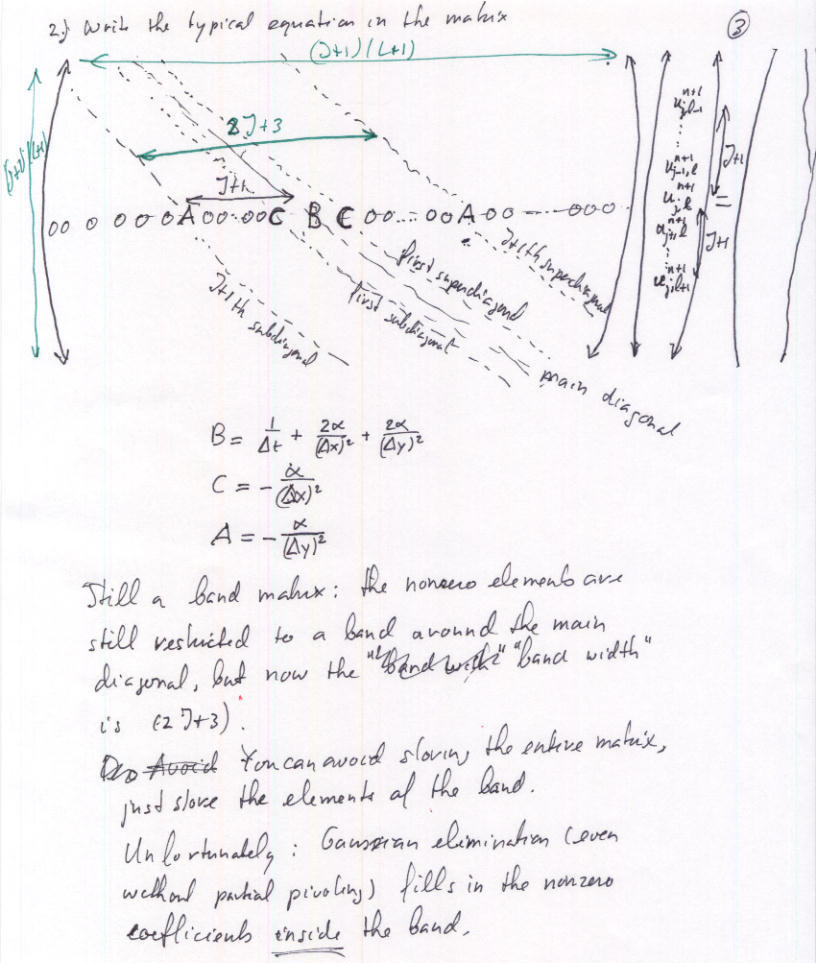 2.) Write the typical equation in the matrix
③
(J+1)(L+1)
(J+1)(L+1)
2J+3
J+1
oo o o o o A oo...oo C B C oo....ooA oo ---- ooo
J+1th subdiagonal
first subdiagonal
first superdiagonal
J+1th superdiagonal
main diagonal
u^{n+1}_{j,l-1}
⋮
u^{n+1}_{j-1,l}
u^{n+1}_{j,l}
u^{n+1}_{j+1,l}
⋮
u^{n+1}_{j,l+1}
J+1
J+1
=
B = 1/Δt + 2α/(Δx)² + 2α/(Δy)²
C = - α/(Δx)²
A = - α/(Δy)²
Still a band matrix: the nonzero elements are
still restricted to a band around the main
diagonal, but now the "band width" "band width"
is (2J+3).
Avoid You can avoid sloving the entire matrix,
just slove the elements of the band.
Unfortunately: Gaussian elimination (even
without partial pivoting) fills in the nonzero
coefficients inside the band.